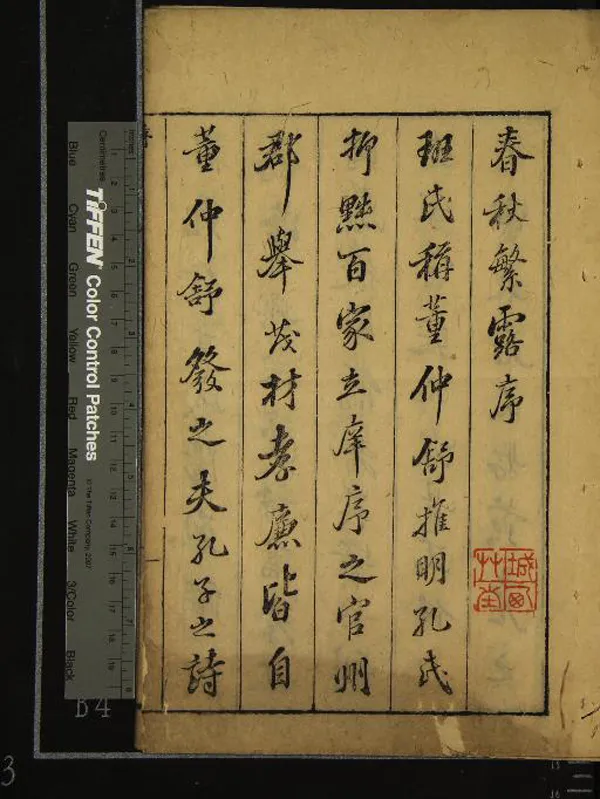 春秋繁露序
班氏稱董仲舒推明孔氏
抑黜百家立庠序之官州
郡舉茂材孝廉皆自
董仲舒發之夫孔子之詩
城西草堂
inches
Centimetres
TIFFEN Color Control Patches
© The Tiffen Company, 2007
Blue
Cyan
Green
Yellow
Red
Magenta
White
3/Color
Black
B4
3